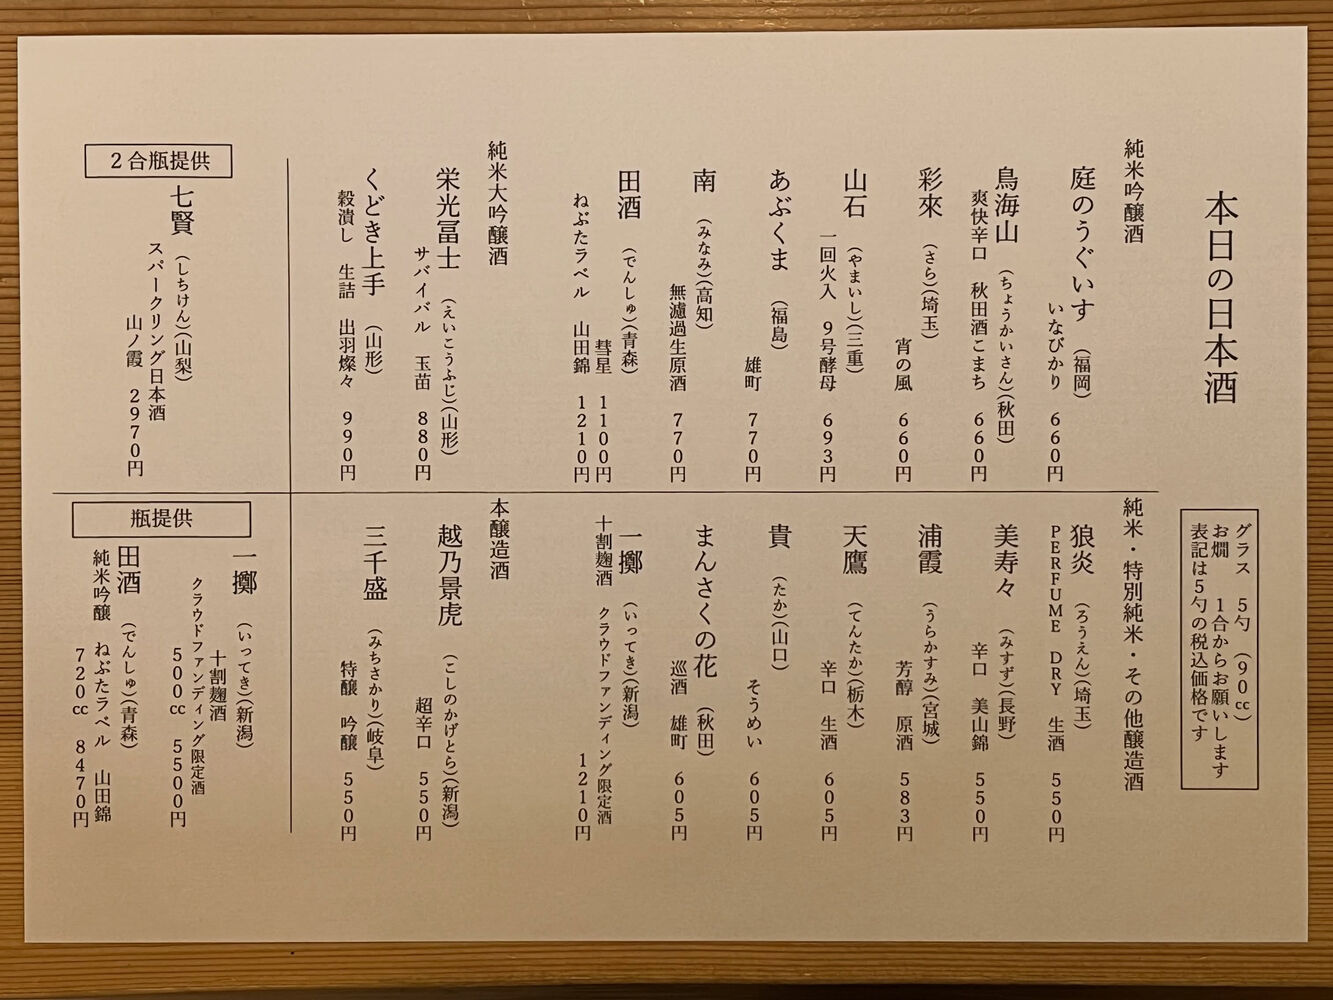 本日の日本酒
グラス 5勺 (90cc)
お燗 1合からお願いします
表記は5勺の税込価格です
純米吟醸酒
庭のうぐいす (福岡)
いなびかり 660円
鳥海山 (ちょうかいさん)(秋田)
爽快辛口 秋田酒こまち 660円
彩來 (さら)(埼玉)
宵の風 660円
山石 (やまいし)(三重)
一回火入 9号酵母 693円
あぶくま (福島)
雄町 770円
南 (みなみ)(高知)
無濾過生原酒 770円
田酒 (でんしゅ)(青森)
彗星 1100円
ねぶたラベル 山田錦 1210円
純米大吟醸酒
栄光冨士 (えいこうふじ)(山形)
サバイバル 玉苗 880円
くどき上手 (山形)
穀潰し 生詰 出羽燦々 990円
純米・特別純米・その他醸造酒
狼炎 (ろうえん)(埼玉)
PERFUME DRY 生酒 550円
美寿々 (みすず)(長野)
辛口 美山錦 550円
浦霞 (うらかすみ)(宮城)
芳醇 原酒 583円
天鷹 (てんたか)(栃木)
辛口 生酒 605円
貴 (たか)(山口)
そうめい 605円
まんさくの花 (秋田)
巡酒 雄町 605円
一擲 (いってき)(新潟)
十割麹酒 クラウドファンディング限定酒
1210円
本醸造酒
越乃景虎 (こしのかげとら)(新潟)
超辛口 550円
三千盛 (みちさかり)(岐阜)
特醸 吟醸 550円
2合瓶提供
七賢 (しちけん)(山梨)
スパークリング日本酒
山ノ霞 2970円
瓶提供
一擲 (いってき)(新潟)
十割麹酒
クラウドファンディング限定酒
500cc 5500円
田酒 (でんしゅ)(青森)
純米吟醸 ねぶたラベル 山田錦
720cc 8470円